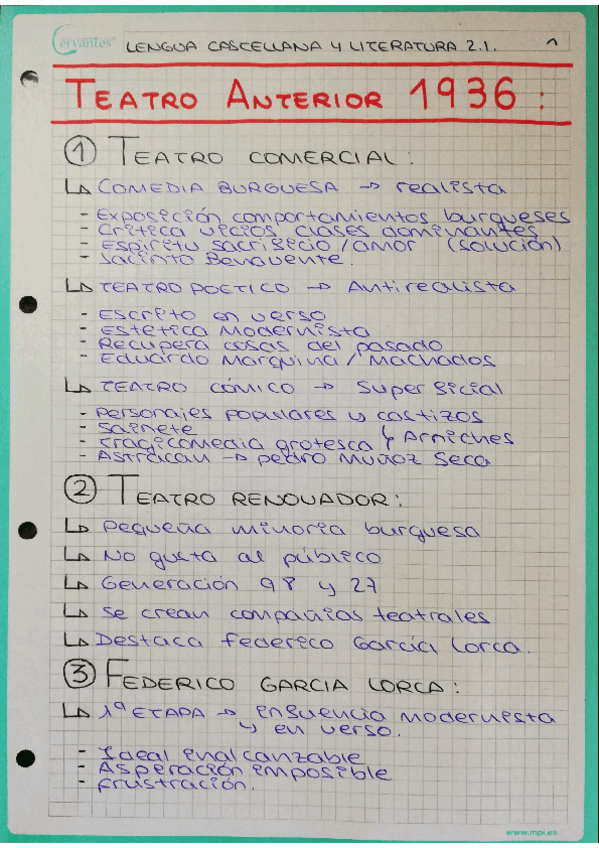 Cervantes® LENGUA CASTELLANA Y LITERATURA 2.1. 1
TEATRO ANTERIOR 1936:
① TEATRO COMERCIAL:
↳ COMEDIA BURGUESA → realista
- Exposición comportamientos burgueses
- Crítica vicios clases dominantes
- Espíritu sacrificio/amor (solución)
- Jacinto Benavente.
↳ TEATRO POETICO → Antirealista
- Escrito en verso
- Estética Modernista
- Recupera cosas del pasado
- Eduardo Marquina / Machados
↳ TEATRO CÓMICO → Superficial
- Personajes populares y castizos
- Sainete
- Tragicomedia grotesca } Arniches
- Astracan → Pedro Muñoz Seca
② TEATRO RENOVADOR:
↳ Pequeña minoría burguesa
↳ No gusta al público
↳ Generación 98 y 27
↳ Se crean compañias teatrales
↳ Destaca Federico García Lorca.
③ FEDERICO GARCIA LORCA:
↳ 1ª ETAPA → influencia modernista
y en verso.
- Ideal inalcanzable
- Asperación imposible
- Frustración.
www.mpi.es